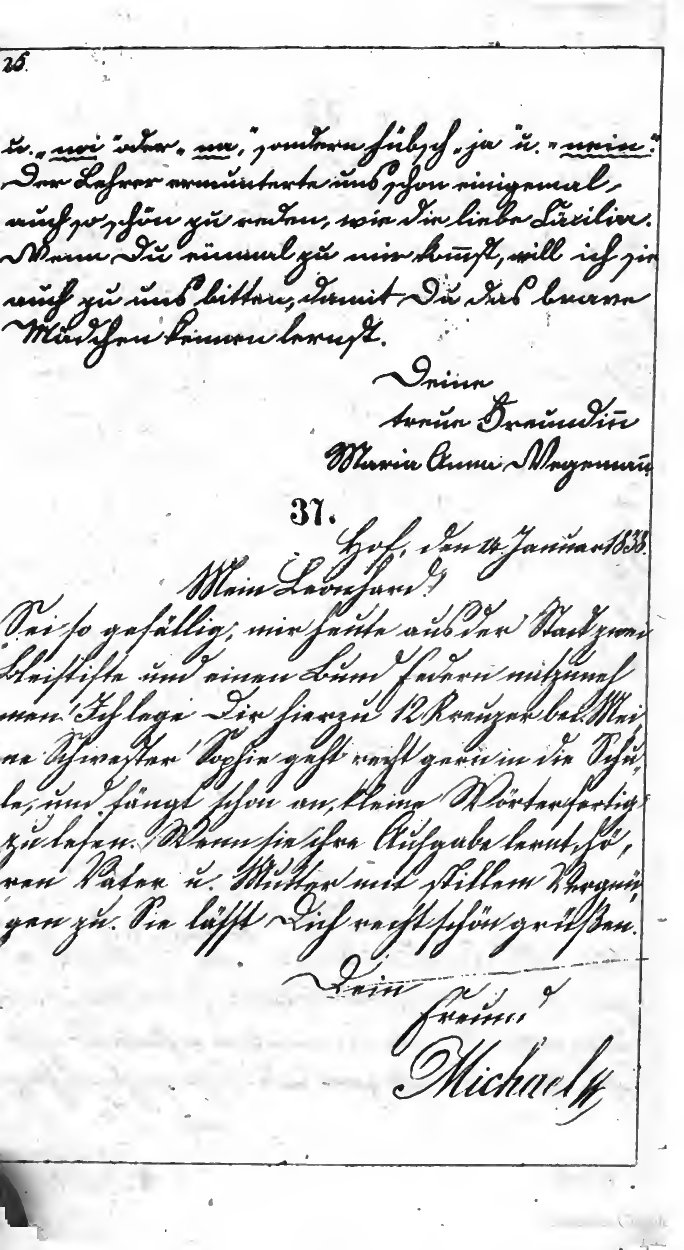 25.
u. "noi" oder "na," sondern hübsch "ja" u. "nein."
Der Lehrer ermunterte uns schon einigemal,
auch so schön zu reden, wie die liebe Cäcilia.
Wenn Du einmal zu mir kom̅st, will ich sie
auch zu uns bitten, damit Du das brave
Mädchen kennen lernst.
Deine
treue Freundin̅
Maria Anna Wegeman̅.
37.
Hof, den 4. Januar 1838.
Mein Leonhard!
Sei so gefällig, mir heute aus der Stadt zwei
Bleistifte und einen Bund Federn mitzuneh
men. Ich lege Dir hierzu 12 Kreuzer bei. Mei
ne Schwester Sophie geht recht gern in die Schu
le, und fängt schon an, kleine Wörter fertig
zu lesen. Wenn sie ihre Aufgabe lernt, hö,
ren Vater u. Mutter mit stillem Vergnü
gen zu. Sie läßt Dich recht schön grüßen.
Dein
Freund
Michael